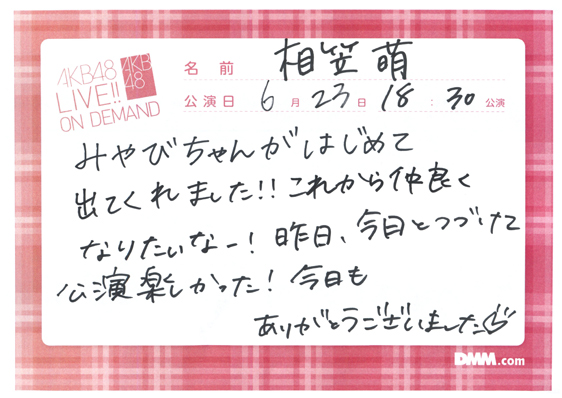 AKB48
LIVE!!
ON DEMAND
AKB
48
名前 相笠萌
公演日 6月23日 18:30公演
みやびちゃんがはじめて
出てくれました!!これから仲良く
なりたいなー!昨日、今日とつづけて
公演楽しかった!今日も
ありがとうございました
DMM.com